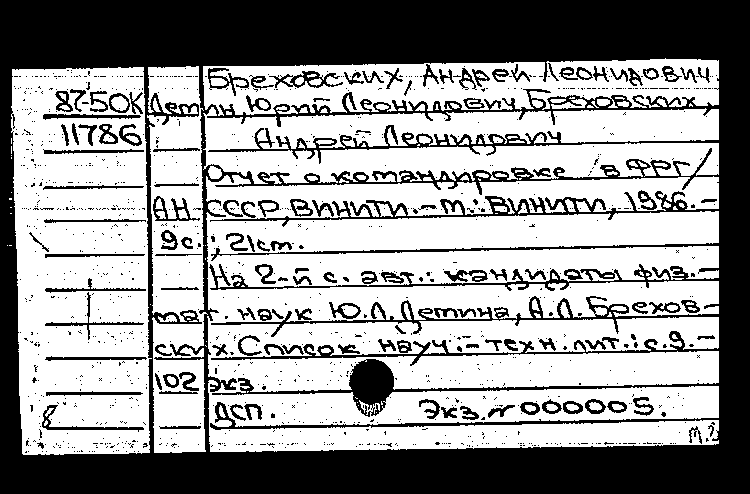 Бреховских, Андрей Леонидович.
87-50К Детин, Юрий Леонидович, Бреховских,
11786 Андрей Леонидович
Отчет о командировке /в ФРГ/
АН СССР, ВИНИТИ. - М.: ВИНИТИ, 1986. -
9с.; 21см.
На 2-й с. авт.: кандидаты физ.-
мат. наук Ю.Л. Детина, А.Л. Брехов-
ских. Список науч.-техн. лит.: с.9.-
102 экз.
8 ДСП. Экз. № 000005.